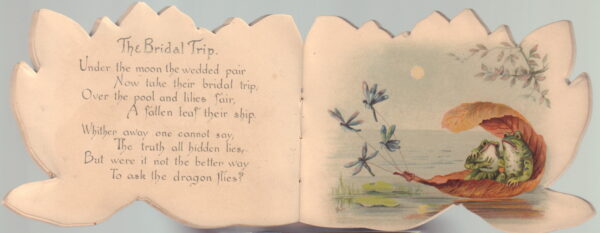 The Bridal Trip.
Under the moon the wedded pair
Now take their bridal trip,
Over the pool and lilies fair,
A fallen leaf their ship.
Whither away one cannot say,
The truth all hidden lies,
But were it not the better way
To ask the dragon flies?